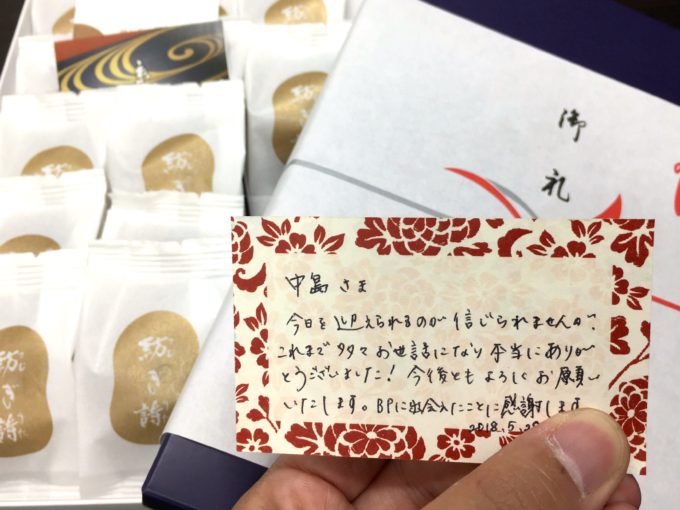 御礼
中島さま
今日を迎えられるのが信じられませんが、
これまで多々お世話になり本当にありが
とうございました!今後ともよろしくお願い
いたします。BPに出会えたことに感謝します
2018.5.28
紡ぎ詩
紡ぎ詩
紡ぎ詩
紡ぎ
紡